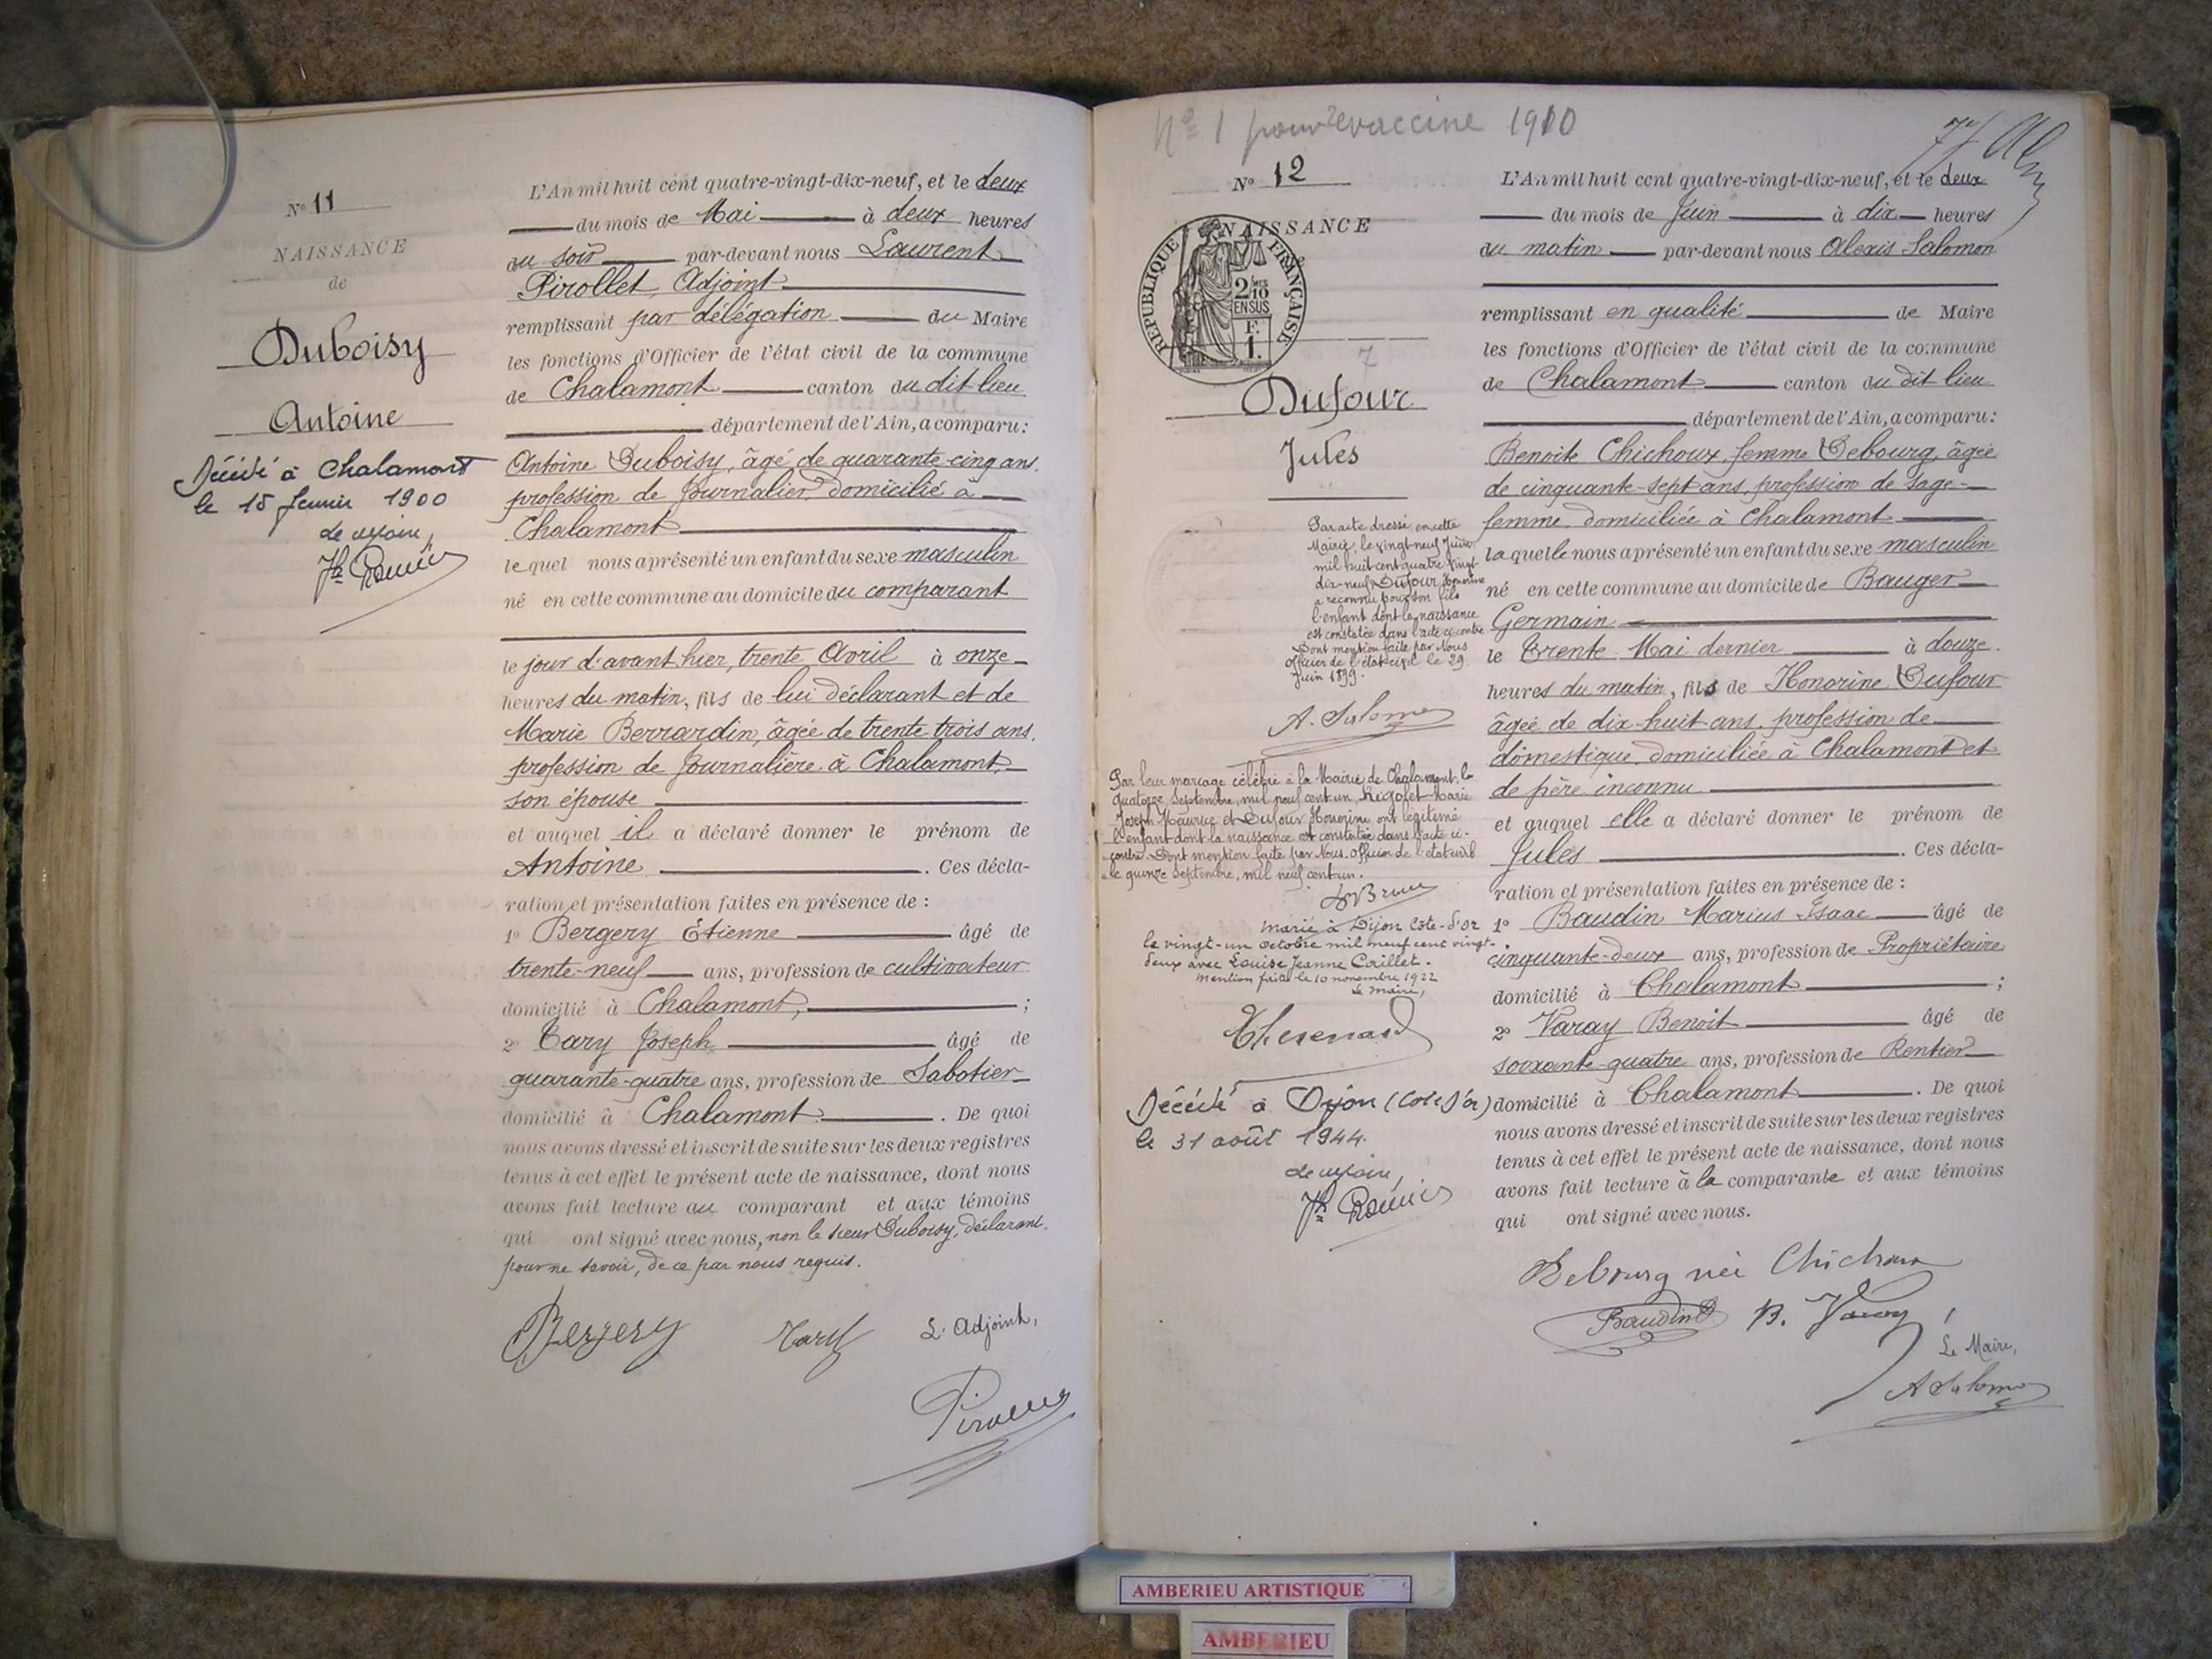 Nº 11
NAISSANCE
de
Duboisy
Antoine
Décédé à Chalamont
le 15 février 1900
Le Maire,
L'An mil huit cent quatre-vingt-dix-neuf, et le deux
du mois de Mai à deux heures
du soir par-devant nous Laurent
Pirollet, Adjoint
remplissant par délégation du Maire
les fonctions d'Officier de l'état civil de la commune
de Chalamont canton du dit lieu
département de l'Ain, a comparu :
Antoine Duboisy, âgé de quarante-cinq ans,
profession de Journalier, domicilié à
Chalamont
lequel nous a présenté un enfant du sexe masculin
né en cette commune au domicile du comparant
le jour d'avant hier, trente Avril à onze
heures du matin, fils de lui déclarant et de
Marie Berrardin, âgée de trente trois ans,
profession de Journalière à Chalamont,
son épouse
et auquel il a déclaré donner le prénom de
Antoine . Ces décla-
ration et présentation faites en présence de :
1º Bergery Étienne âgé de
trente-neuf ans, profession de cultivateur
domicilié à Chalamont, ;
2º Tary Joseph âgé de
quarante-quatre ans, profession de Sabotier
domicilié à Chalamont . De quoi
nous avons dressé et inscrit de suite sur les deux registres
tenus à cet effet le présent acte de naissance, dont nous
avons fait lecture au comparant et aux témoins
qui ont signé avec nous, non le sieur Duboisy, déclarant.
pour ne savoir, de ce par nous requis.
Bergery Tary L'Adjoint,
Pirollet
Nº 1 pour revaccine 1910
Nº 12
NAISSANCE
REPUBLIQUE FRANÇAISE
2/10
EN SUS
F.
1.
7
Dufour
Jules
Par acte dressé en cette
Mairie, le vingt neuf Juin
mil huit cent quatre vingt
dix-neuf, Dufour Honorine
a reconnu pour son fils
l'enfant dont la naissance
est constatée dans l'acte ci-contre
Dont mention faite par Nous
Officier de l'état civil le 29
Juin 1899.
A. Salomon
Par leur mariage célébré à la Mairie de Chalamont, le
quatorze Septembre, mil neuf cent un, Rigolet Marie
Joseph Maurice et Dufour Honorine ont légitimé
l'enfant dont la naissance est constatée dans l'acte ci-
contre. Dont mention faite par Nous Officier de l'état civil
le quinze Septembre, mil neuf cent un.
Marié à Dijon Côte-d'Or
le vingt-un octobre mil neuf cent vingt-
deux avec Louise Jeanne Caillet.
Mention faite le 10 novembre 1922
Le Maire,
Décédé à Dijon (Côte d'Or)
le 31 août 1944.
Le Maire,
L'An mil huit cent quatre-vingt-dix-neuf, et le deux
du mois de Juin à dix heures
du matin par-devant nous Alexis Salomon
remplissant en qualité de Maire
les fonctions d'Officier de l'état civil de la commune
de Chalamont canton du dit lieu
département de l'Ain, a comparu :
Benoite Chichoux, femme Debourg, âgée
de cinquante-sept ans, profession de sage-
femme domiciliée à Chalamont
laquelle nous a présenté un enfant du sexe masculin
né en cette commune au domicile de Bauger
Germain
le Trente Mai dernier à douze
heures du matin, fils de Honorine Dufour
âgée de dix-huit ans, profession de
domestique, domiciliée à Chalamont et
de père inconnu
et auquel elle a déclaré donner le prénom de
Jules . Ces décla-
ration et présentation faites en présence de :
1º Baudin Marius Isaac âgé de
cinquante-deux ans, profession de Propriétaire
domicilié à Chalamont ;
2º Varay Benoit âgé de
soixante-quatre ans, profession de Rentier
domicilié à Chalamont . De quoi
nous avons dressé et inscrit de suite sur les deux registres
tenus à cet effet le présent acte de naissance, dont nous
avons fait lecture à la comparante et aux témoins
qui ont signé avec nous.
Debourg née Chichoux
Baudin B. Varay
Le Maire,
A Salomon
AMBERIEU ARTISTIQUE
AMBERIEU